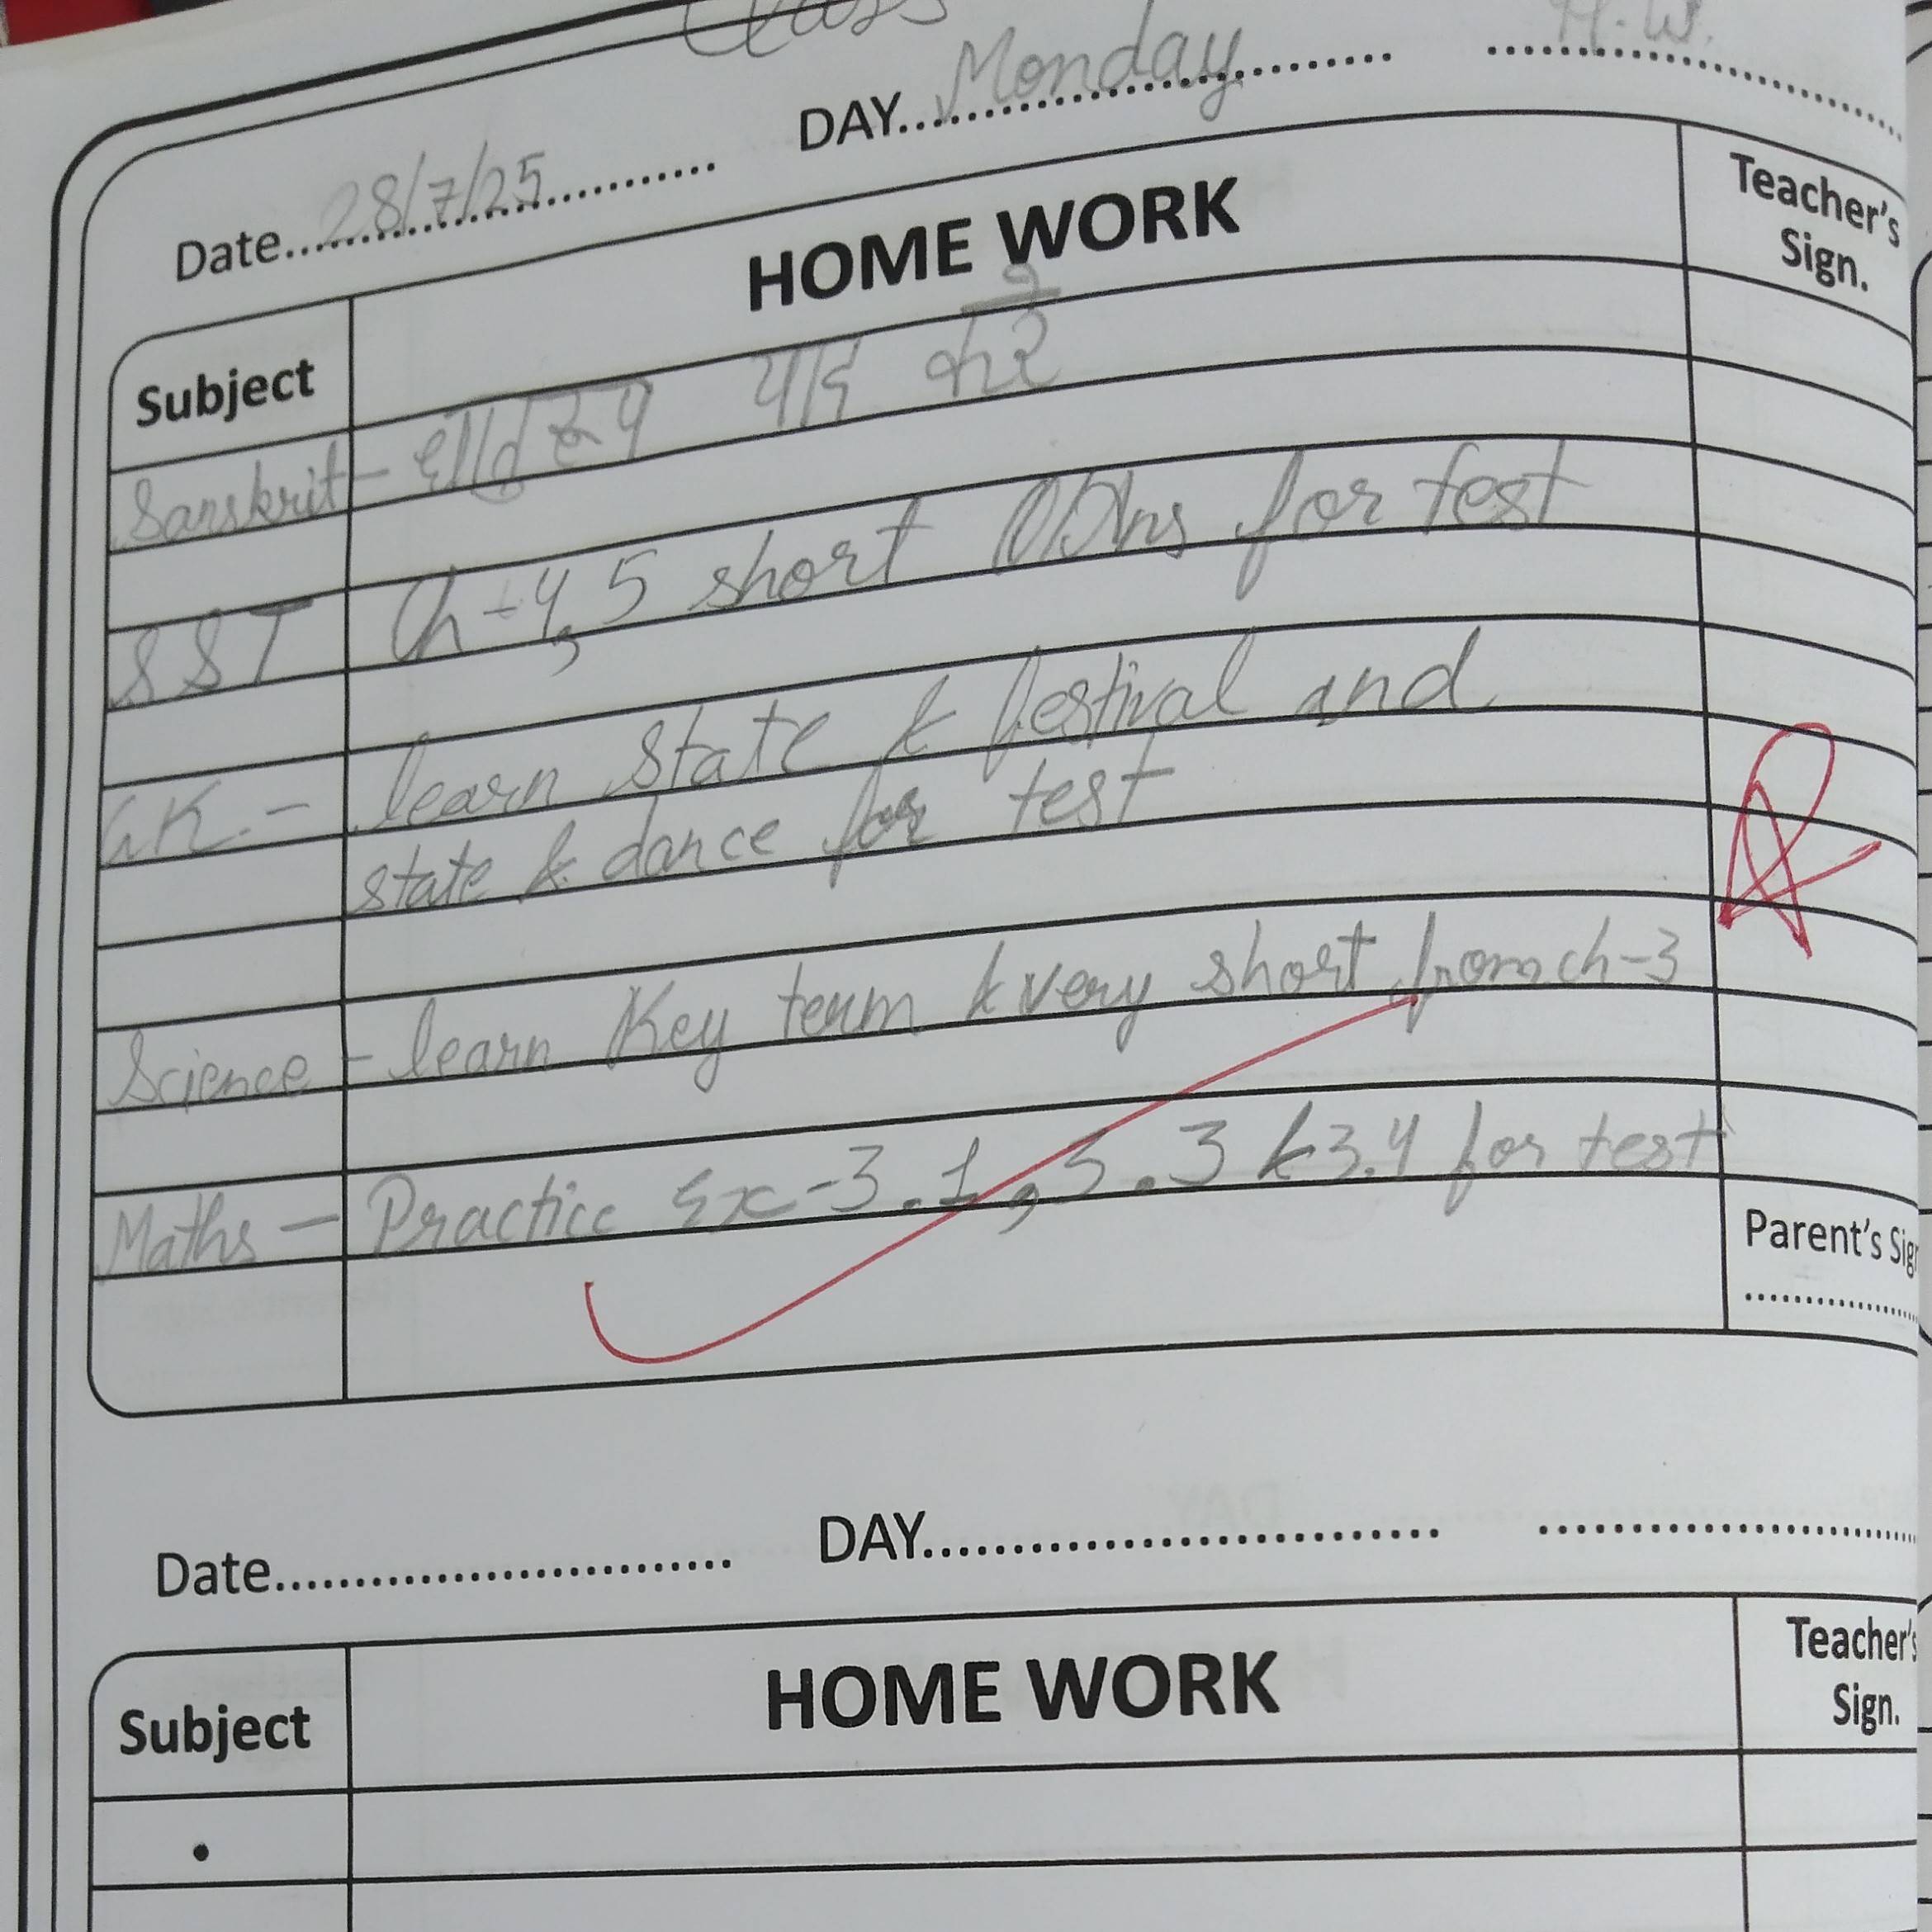 Class
DAY Monday H.W.
Date 28/7/25
Subject HOME WORK Teacher's Sign.
Sanskrit - धातु रूप याद करें
SST Ch - 4, 5 short Q/Ans for test
G.K. - learn state & festival and
state & dance for test
Science - learn Key term & very short from ch-3
Maths - Practice Ex-3.1, 3.3 & 3.4 for test
Parent's
Date DAY
Subject HOME WORK Teacher's Sign.